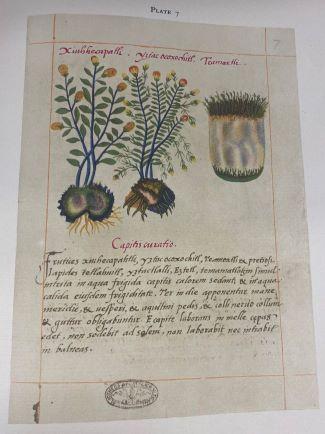 PLATE 7
7
Xiuhhecapatli. Yztac ocoxochitl. Teamoxtli.
Capitis curatio.
Frutices xiuhhecapatli, yztac ocoxochitl, teamoxtli & pretiosi
lapides tetlahuitl, yztactlalli, Eztetl, temamatlatzin simul
intrita in aqua frigida capitis calorem sedant, & in aqua
calida eiusdem frigiditatē. Ter in die apponentur mane,
meridie, & vesperi, & aquilini pedis, & colli nervo collum
& guttur obligabuntur. E capite laborans in melle cępas
edet, non sedebit ad solem, non laborabit nec intrabit
in balneas.